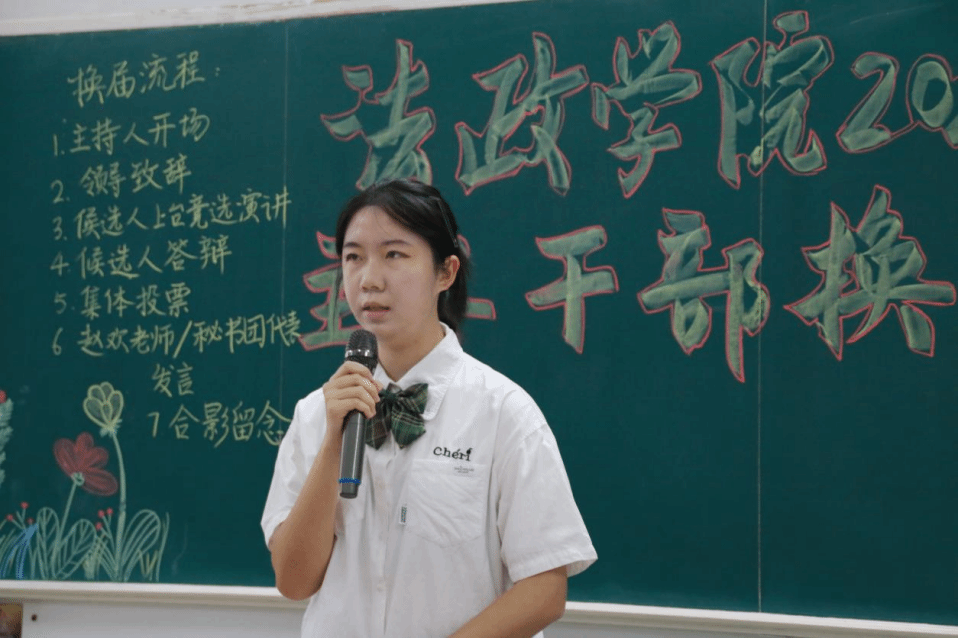 换届流程：
1.主持人开场
2.领导致辞
3.候选人上台竞选演讲
4.候选人答辩
5.集体投票
6 赵欢老师/秘书团代表
发言
7合影留念
法政学院20
干部换
chéri